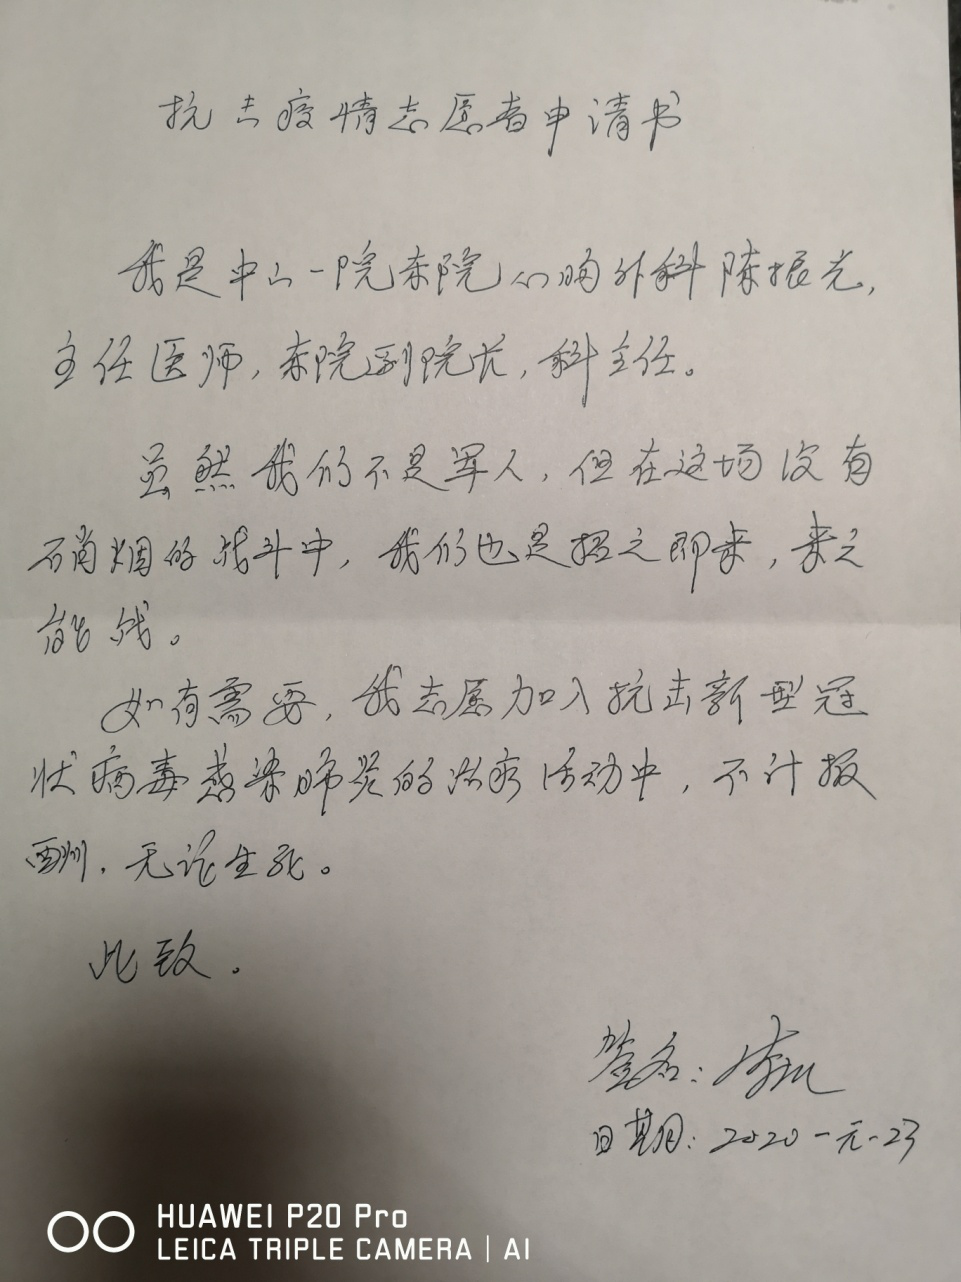 抗击疫情志愿者申请书
我是中山一院东院心胸外科陈振光,
主任医师,东院副院长,科主任。
虽然我们不是军人,但在这场没有
硝烟的战斗中,我们也是招之即来,来之
能战。
如有需要,我志愿加入抗击新型冠
状病毒感染肺炎的治疗活动中,不计报
酬,无论生死。
此致。
签名:
日期:2020-元-23
HUAWEI P20 Pro
LEICA TRIPLE CAMERA | AI